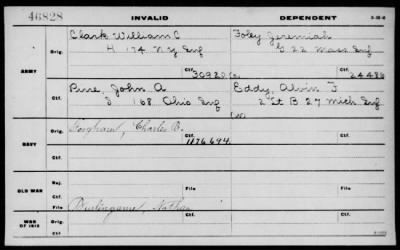 46828 INVALID DEPENDENT 3-25-6
Clark William C Foley Jeremiah
Orig. H 174 N.Y Inf G 22 Mass Inf
ARMY Ctf. 30920 24486
Orig. John A Eddy, Alvin F
168 Ohio Inf 2 Lt B 27 Mich Inf
Ctf. (W)
Orig. Charles
NAVY Ctf. 1176694
Rej.
OLD WAR Ctf. File File
Orig. Burlingame, Nathan
WAR OF 1812 Ctf.